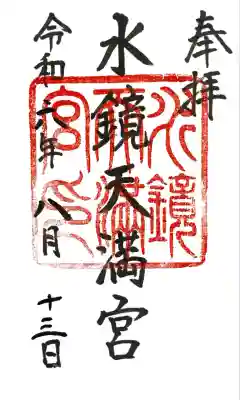 奉拝
水鏡天満宮
令和六年八月十三日
水鏡天満宮印